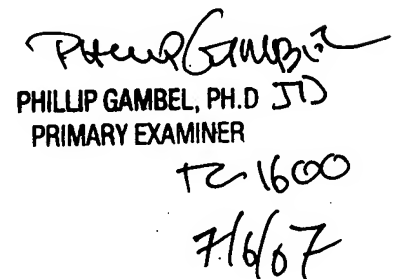 Phillip Gambel
PHILLIP GAMBEL, PH.D JD
PRIMARY EXAMINER
TC 1600
7/6/07